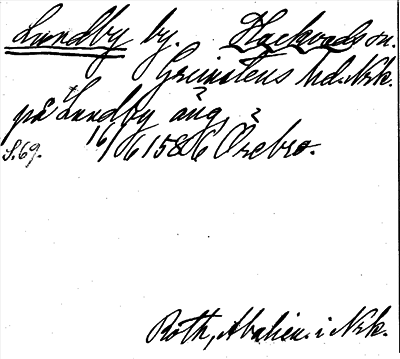 Lundby by. Hackvads sn.
Grimstens hd. Nrk.
på Lundby äng
S.69. 16/6 1586 Örebro.
Roth, Abalien. i Nrk.